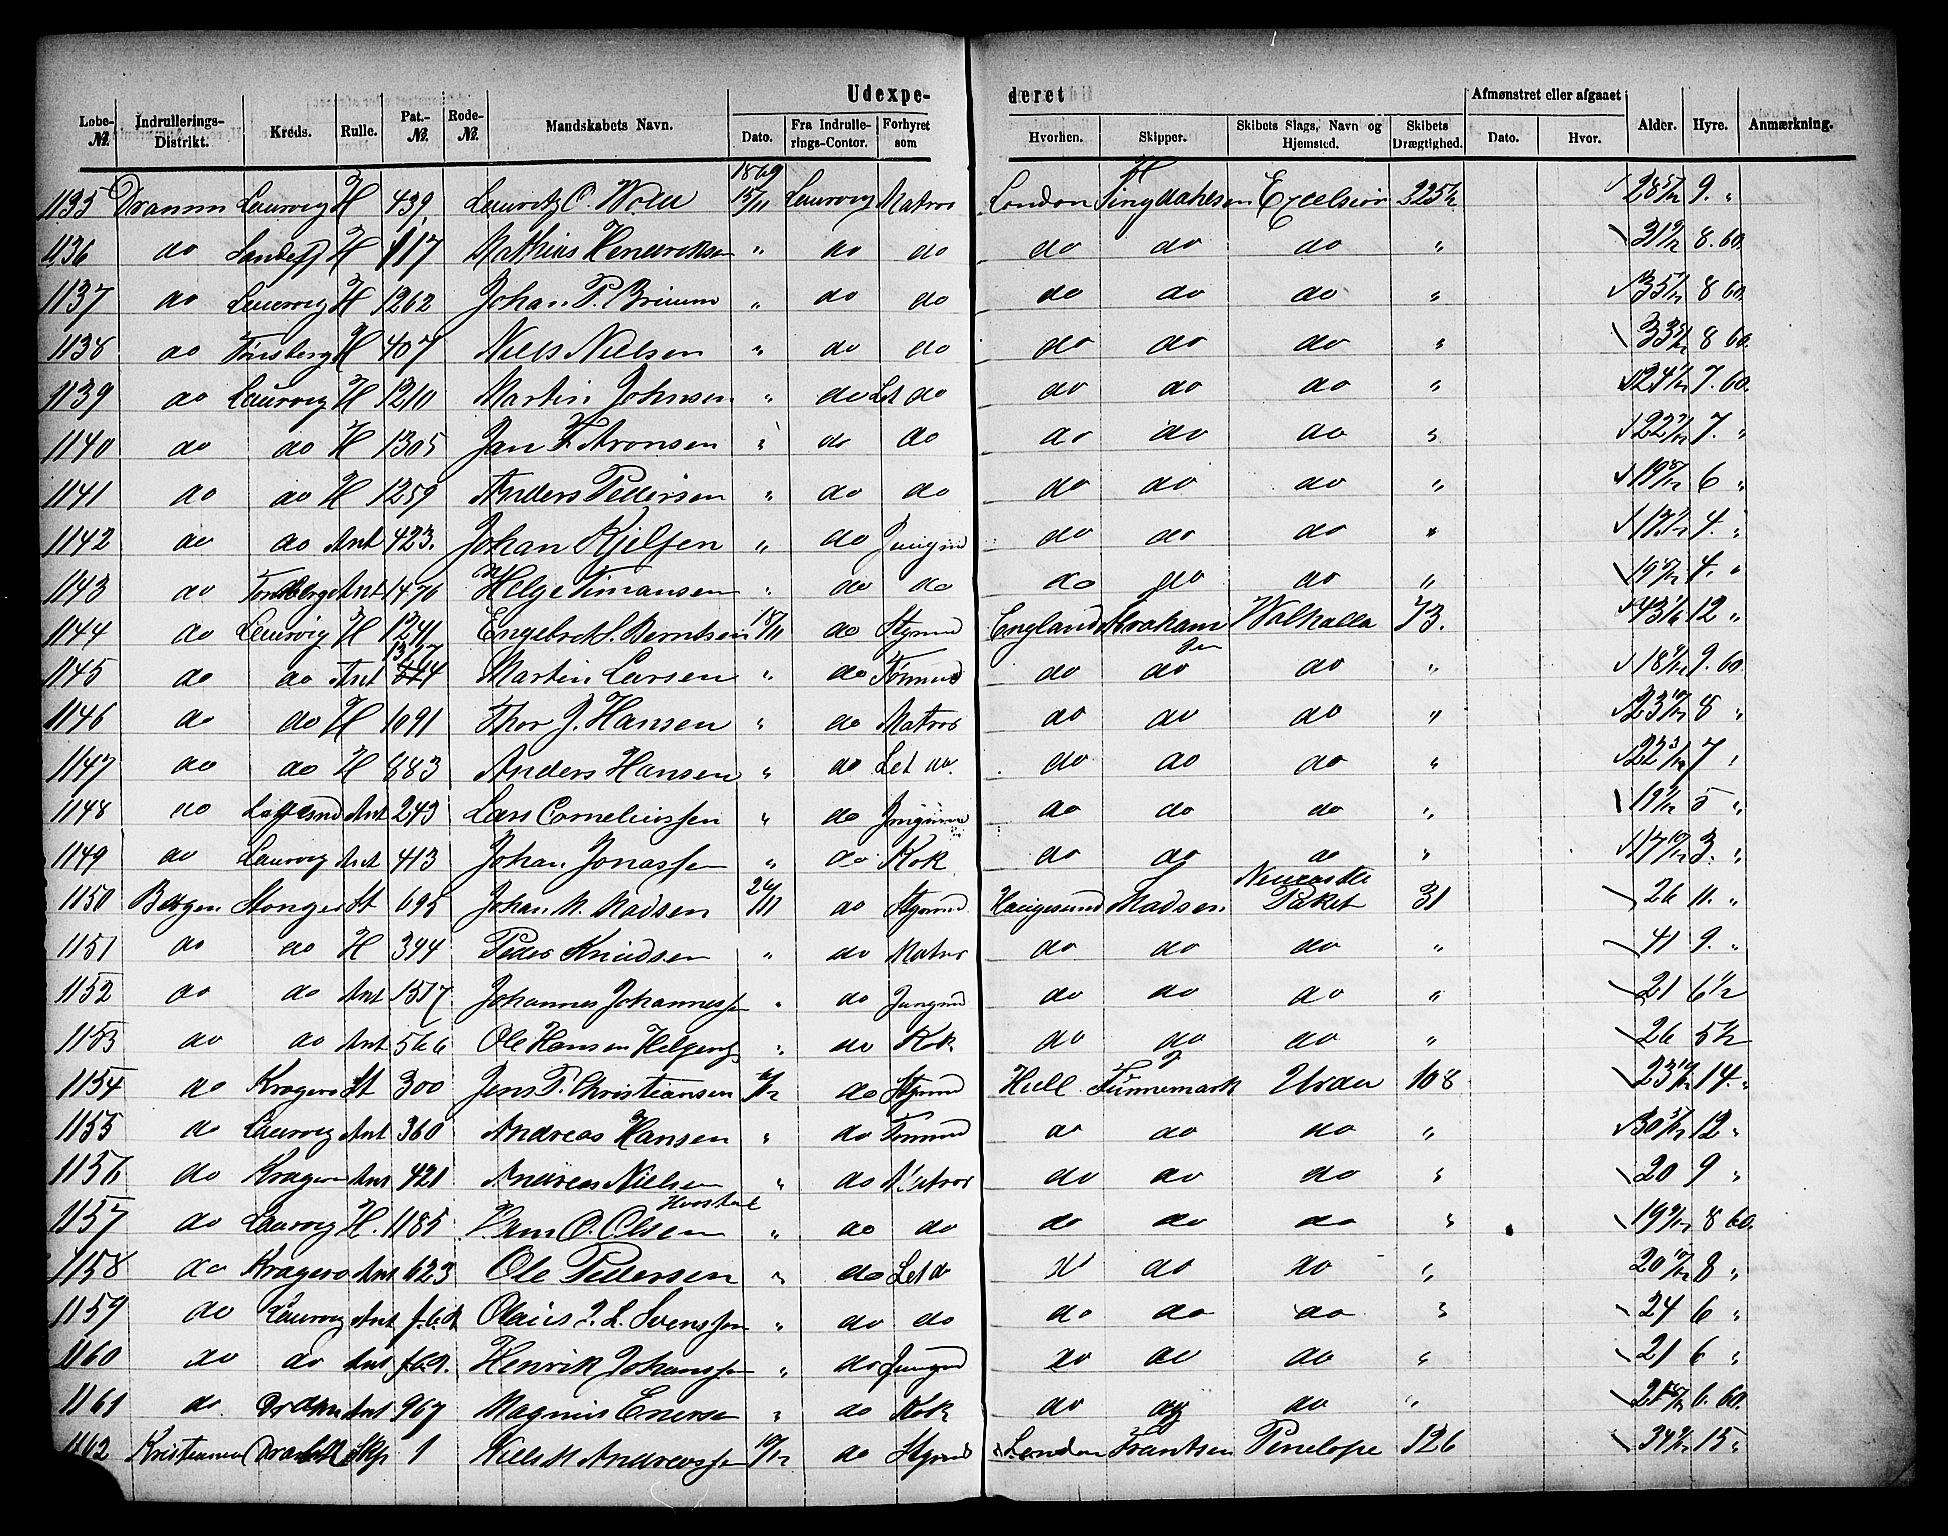 Udexpe- deret
Løbe-№ Indrullerings-Distrikt. Kreds. Rulle. Pat.-№ Rode-№ Mandskabets Navn. Dato. Fra Indrullerings-Contor. Forhyret som Hvorhen. Skipper. Skibets Slags, Navn og Hjemsted. Skibets Drægtighed. Afmønstret eller afgaaet Dato. Hvor. Alder. Hyre. Anmærkning.
1869
1135 Dramm Laurvig H 439 Lauritz C. 15/11 Laurvig Matros London Excelsior 225½ 9. "
1136 do Sandeff H 117 Mathias Hendriksen " do do do do do " 8. 60.
1137 do Laurvig H 1262 Johan P. " do do do do do " 8 60.
1138 do Tønsberg H 407 Niels Nielsen " do do do do do " 8 60.
1139 do Laurvig H 1210 Martin Johnsen " do Let do do do do " 7. 60.
1140 do do H 1305 Jan F. Aronsen " do do do do do " 7. "
1141 do do H 1259 Anders Pedersen " do do do do do " 6 "
1142 do do Ant 423. Johan Kjelsen " do Jungmd do do do " 4. "
1143 do Ant 1470 Helge Timansen " do do do do do " 4. "
1144 do Laurvig H 1241 Engebret S. Berntsen 18/11 do Styrmd England Abrahamsen Walhalla 73. 12 "
1145 do do Ant 1317 Martin Larsen " do Tømmd do do do " 9. 60.
1146 do do H 1091 Thor J. Hansen " do Matros do do do " 8 "
1147 do do H 883 Anders Hansen " do Let do. do do do " 7 "
1148 do Ant 243 Lars Corneliussen " do Jungmd do do do " 5 "
1149 do Laurvig Ant 413 Johan Jonassen " do Kok do do do " 3. "
1150 Bergen St 695 Johan M. Madsen do Styrmd Haugesund Madsen Paket 31 26 11. "
1151 do do H 394 Peder Knudsen " do Matros do do do " 41 9. "
1152 do do Ant 1517 Johannes Johannessen " do Jungmd do do do " 21 6½
1153 do do Ant 566 Ole Hansen " do Kok do do do " 26 5½
1154 do Kragerø St 300 Jens P. Christiansen do Styrmd Hull Urda 108 14. "
1155 do Laurvig Ant 360 Andreas Hansen " do Tømmd do do do " 12 "
1156 do Kragerø Ant 421 Andreas Nielsen " do Matros do do do " 20 9 "
1157 do Laurvig H. 1185 O. Olsen " do do do do do " 8 60.
1158 do Kragerø Ant 623 Ole Pedersen " do Let do do do do " 8 "
1159 do Laurvig Ant Olaus Svenssen " do do do do do " 24 6 "
1160 do do Ant Henrik Johanssen " do Jungmd do do do " 21 6 "
1161 do. Dramm Ant 967 Magnus " do Kok do do do " 6. 60.
1162 Kristiania 1 Niels M Andreassen 10/12 do Styrmd London Frantsen Penelope 126 15 "